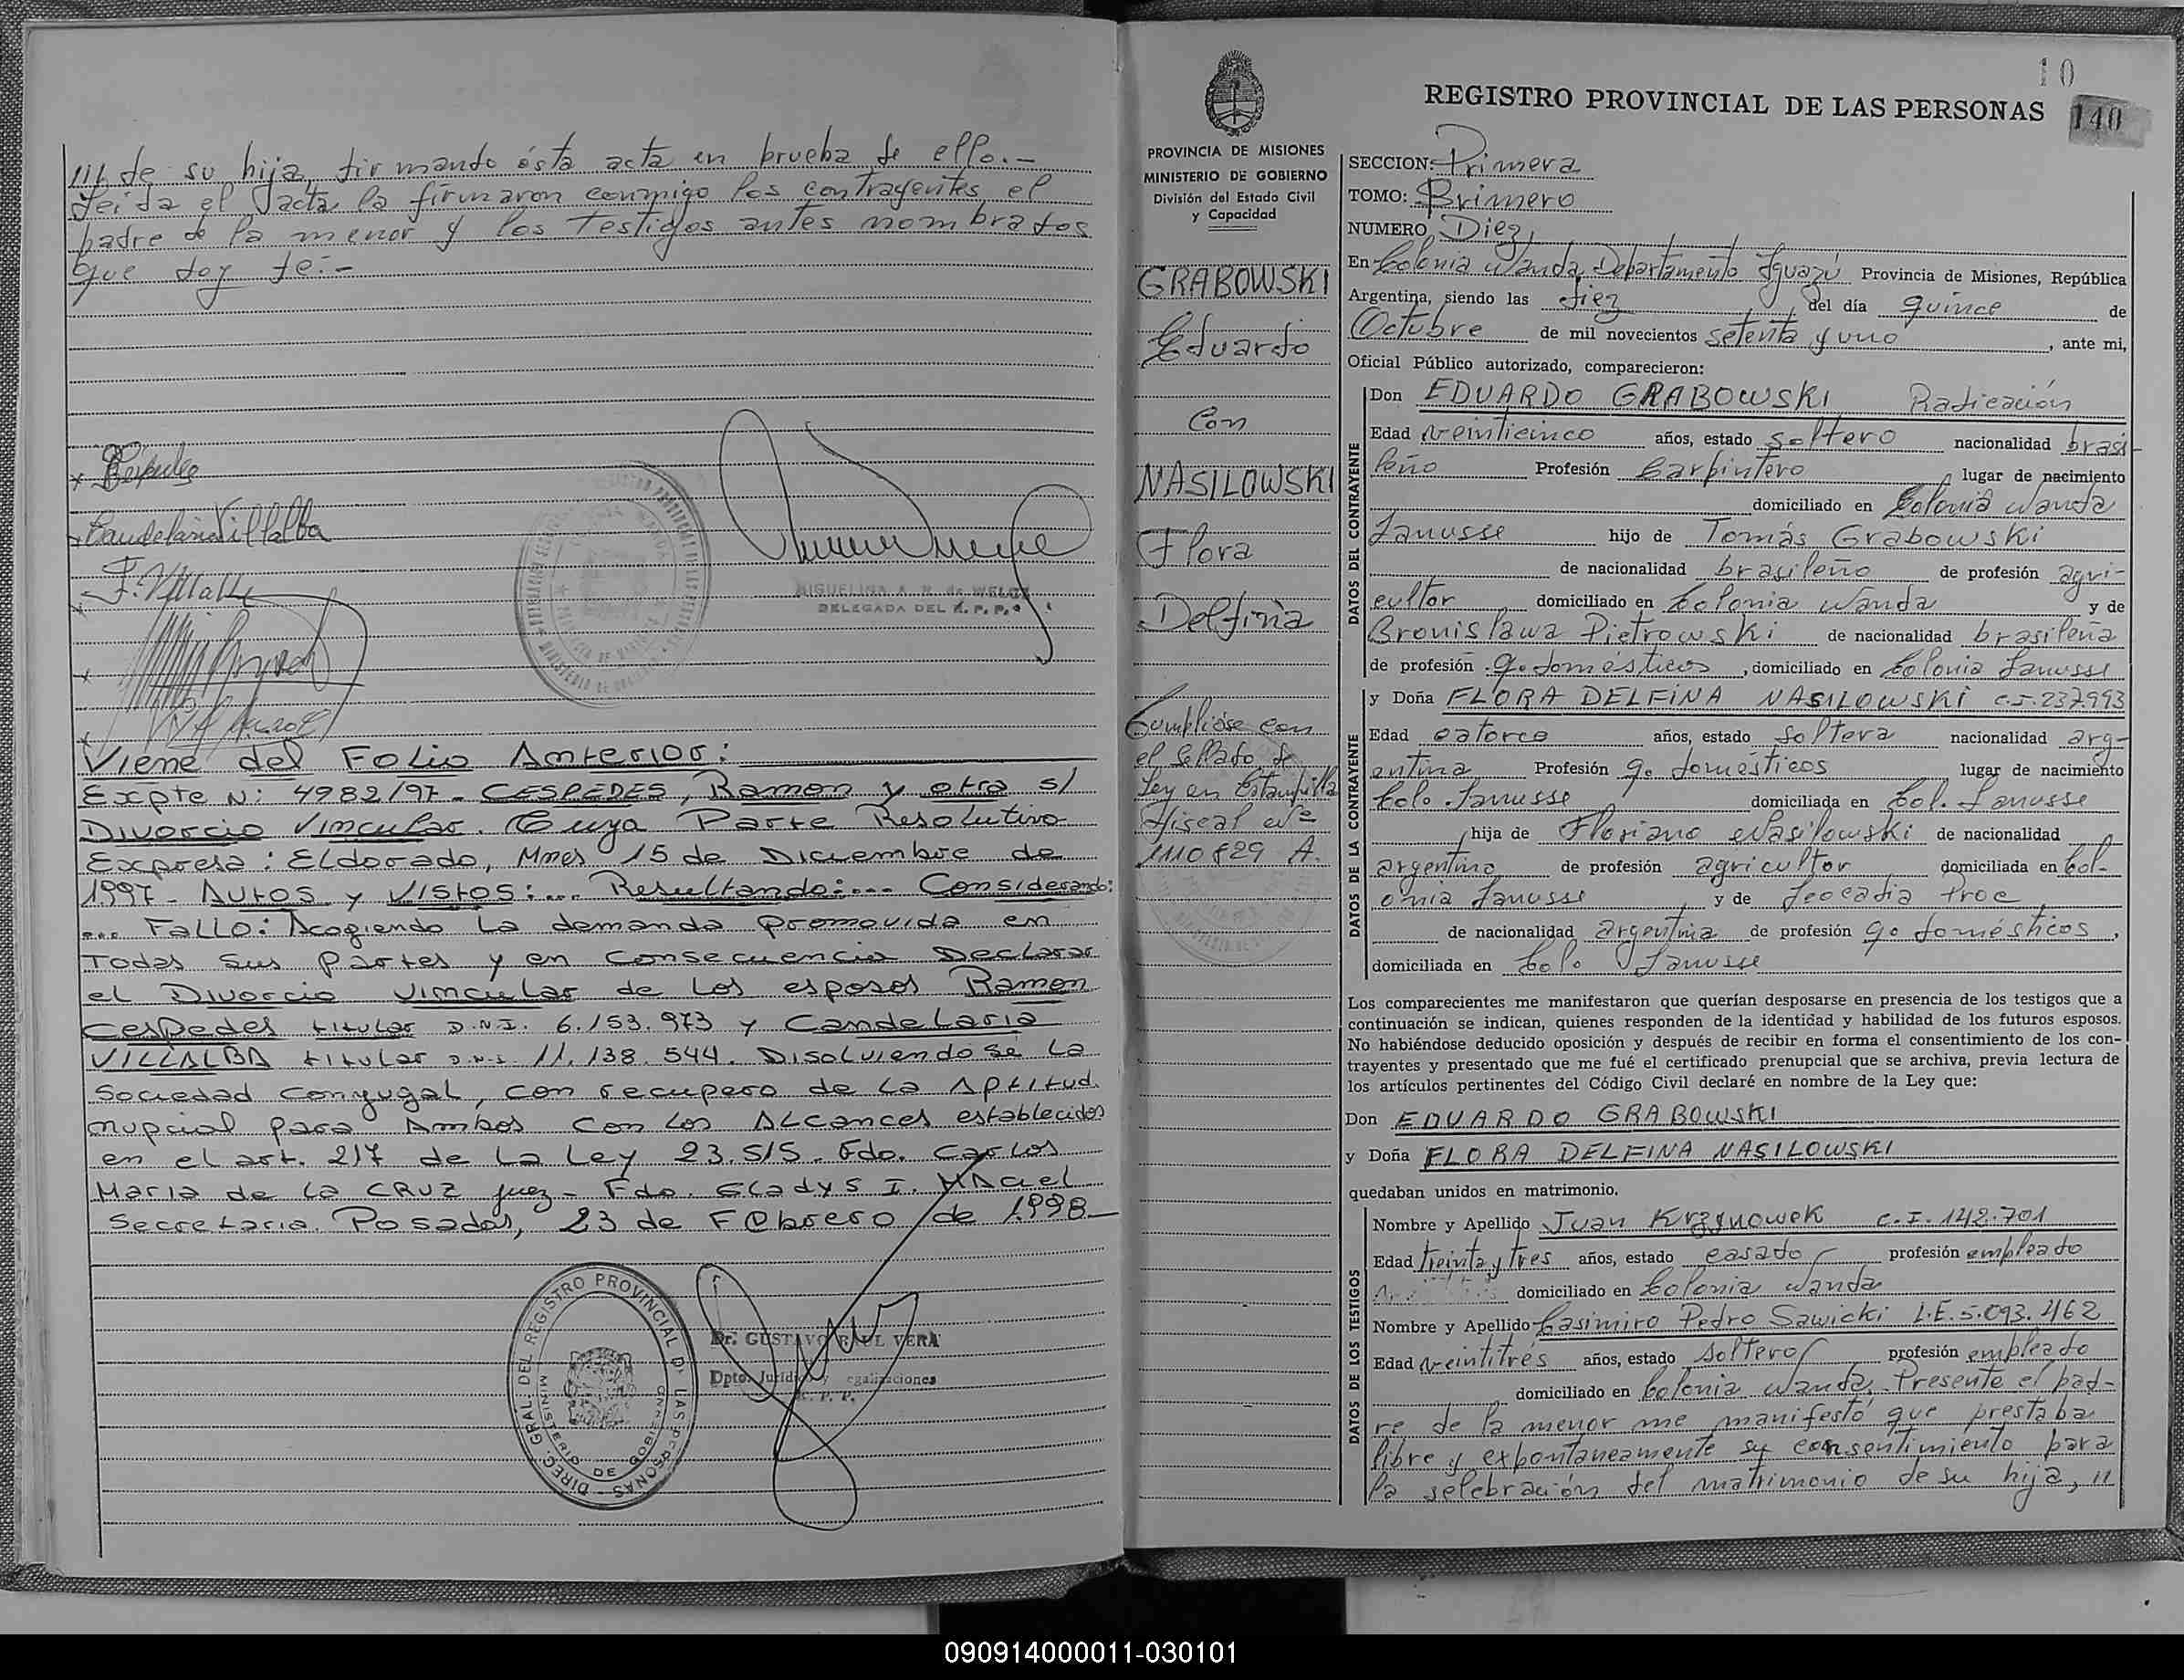 /// de su hija, firmando ésta acta en prueba de ello.-
Leida el acta la firmaron conmigo los contrayentes el
padre de la menor y los testigos antes nombrados
que doy fe.-
Candelaria Villalba
F. Villalba
MIGUELINA A. R. de WELCZ
DELEGADA DEL R. P. P.
Viene del Folio Anterior:
Expte N: 4982/97 - CESPEDES, Ramon y otra s/
Divorcio Vincular. Cuya Parte Resolutiva
Expresa: Eldorado, Mnes 15 de Diciembre de
1997 - Autos y Vistos:... Resultando:... Considerando:
... FALLO: Acogiendo La demanda promovida en
Todas sus partes y en consecuencia Declarar
el Divorcio Vincular de Los esposos Ramon
Cespedes titular D.N.I. 6.153.973 y Candelaria
VILLALBA titular D.N.I. 11.138.544. Disolviendose La
Sociedad Conyugal, con recupero de La Aptitud
nupcial para Ambos con Los Alcances establecidos
en el art. 217 de La Ley 23.515. Fdo. Carlos
Maria de La CRUZ Juez - Fdo. Gladys I. Maciel
Secretaria. Posadas, 23 de Febrero de 1998-
DIREC. GRAL. DEL REGISTRO PROVINCIAL DE LAS PERSONAS
MINISTERIO DE GOBIERNO
Dr. GUSTAVO RAUL VERA
Dpto. Jurídico y Legalizaciones
R. P. P.
10
REGISTRO PROVINCIAL DE LAS PERSONAS
140
PROVINCIA DE MISIONES
MINISTERIO DE GOBIERNO
División del Estado Civil
y Capacidad
GRABOWSKI
Eduardo
Con
NASILOWSKI
Flora
Delfina
Cumplióse con
el Sellado de
Ley en Estampilla
Fiscal Nº
1110829 A.
SECCION: Primera
TOMO: Primero
NUMERO Diez,
En Colonia Wanda, Departamento Iguazú Provincia de Misiones, República
Argentina, siendo las diez del día quince de
Octubre de mil novecientos setenta y uno, ante mi,
Oficial Público autorizado, comparecieron:
DATOS DEL CONTRAYENTE
Don EDUARDO GRABOWSKI Radicación
Edad veinticinco años, estado soltero nacionalidad brasi-
leño Profesión Carpintero lugar de nacimiento
domiciliado en Colonia Wanda
Lanusse hijo de Tomás Grabowski
de nacionalidad brasileño de profesión agri-
cultor domiciliado en Colonia Wanda y de
Bronislawa Pietrowski de nacionalidad brasileña
de profesión q. domésticos, domiciliado en Colonia Lanusse
DATOS DE LA CONTRAYENTE
y Doña FLORA DELFINA NASILOWSKI C.I. 237.993
Edad catorce años, estado soltera nacionalidad arg-
entina Profesión q. domésticos lugar de nacimiento
Colo. Lanusse domiciliada en Col. Lanusse
hija de Floriano Nasilowski de nacionalidad
argentino de profesión agricultor domiciliada en Col-
onia Lanusse y de Leocadia Proc
de nacionalidad argentina de profesión q. domésticos,
domiciliada en Colo. Lanusse
Los comparecientes me manifestaron que querían desposarse en presencia de los testigos que a
continuación se indican, quienes responden de la identidad y habilidad de los futuros esposos.
No habiéndose deducido oposición y después de recibir en forma el consentimiento de los con-
trayentes y presentado que me fué el certificado prenupcial que se archiva, previa lectura de
los artículos pertinentes del Código Civil declaré en nombre de la Ley que:
Don EDUARDO GRABOWSKI
y Doña FLORA DELFINA NASILOWSKI
quedaban unidos en matrimonio.
DATOS DE LOS TESTIGOS
Nombre y Apellido Juan Krzynowek C.I. 142.701
Edad treinta y tres años, estado casado profesión empleado
domiciliado en Colonia Wanda
Nombre y Apellido Casimiro Pedro Sawicki L.E. 5.093.462
Edad veintitrés años, estado soltero profesión empleado
domiciliado en Colonia Wanda. Presente el pad-
re de la menor me manifestó que prestaba
libre y expontaneamente su consentimiento para
la selebración del matrimonio de su hija, //
090914000011-030101